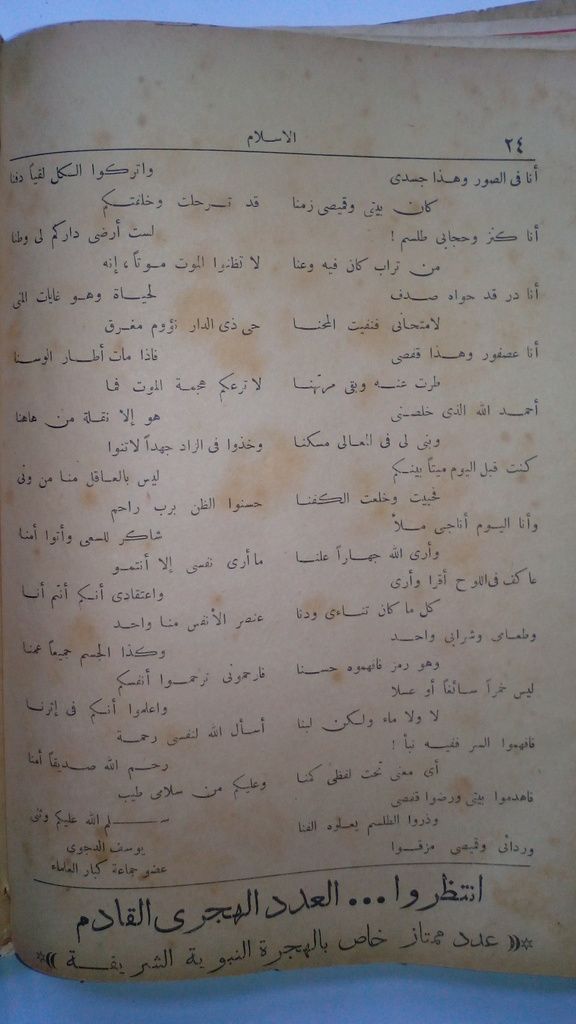 ٢٤
الاسلام
أنا فى الصور وهذا جسدى
كان بيتى وقميصى زمنا
أنا كنز وحجابى طلسم !
من تراب كان فيه وعنا
أنا در قد حواه صدف
لامتحانى فنفيت المحنا
أنا عصفور وهذا قفصى
طرت عنه وبقى مرتهنا
أحمد الله الذى خلصنى
وبنى لى فى المعالى مسكنا
كنت قبل اليوم ميتاً بينكم
فحييت وخلعت الكفنا
وأنا اليوم أناجى ملأ
وأرى الله جهاراً علنا
عاكف فى اللوح أقرا وأرى
كل ما كان تناءى ودنا
وطعامى وشرابى واحد
وهو رمز فافهموه حسنا
ليس خمراً سائغاً أو عسلا
لا ولا ماء ولكن لبنا
فافهموا السر ففيه نبأ !
أى معنى تحت لفظى كمنا
فاهدموا بيتى ورضوا قفصى
وذروا الطلسم يعلوه الفنا
وردائى وقميصى مزقوا
واتركوا الكل لقياً دفنا
قد ترحلت وخلفتكم
لست أرضى داركم لى وطنا
لا تظنوا الموت موتاً ، إنه
لحياة وهو غايات المنى
حى ذى الدار نؤوم مغرق
فاذا مات أطار الوسنا
لا ترعكم هجمة الموت فما
هو إلا نقلة من هاهنا
وخذوا فى الزاد جهداً لاتنوا
ليس بالعاقل منا من ونى
حسنوا الظن برب راحم
شاكر للسعى وأتوا أمنا
ما أرى نفسى إلا أنتمو
واعتقادى أنكم أنتم أنا
عنصر الأنفس منا واحد
وكذا الجسم جميعاً عمنا
فارحمونى ترحموا أنفسكم
واعلموا أنكم فى إثرنا
أسأل الله لنفسى رحمة
رحم الله صديقاً أمنا
وعليكم من سلامى طيب
سلم الله عليكم وثنى
يوسف الدجوى
عضو جماعة كبار العلماء
انتظروا ... العدد الهجرى القادم
عدد ممتاز خاص بالهجرة النبوية الشريفة